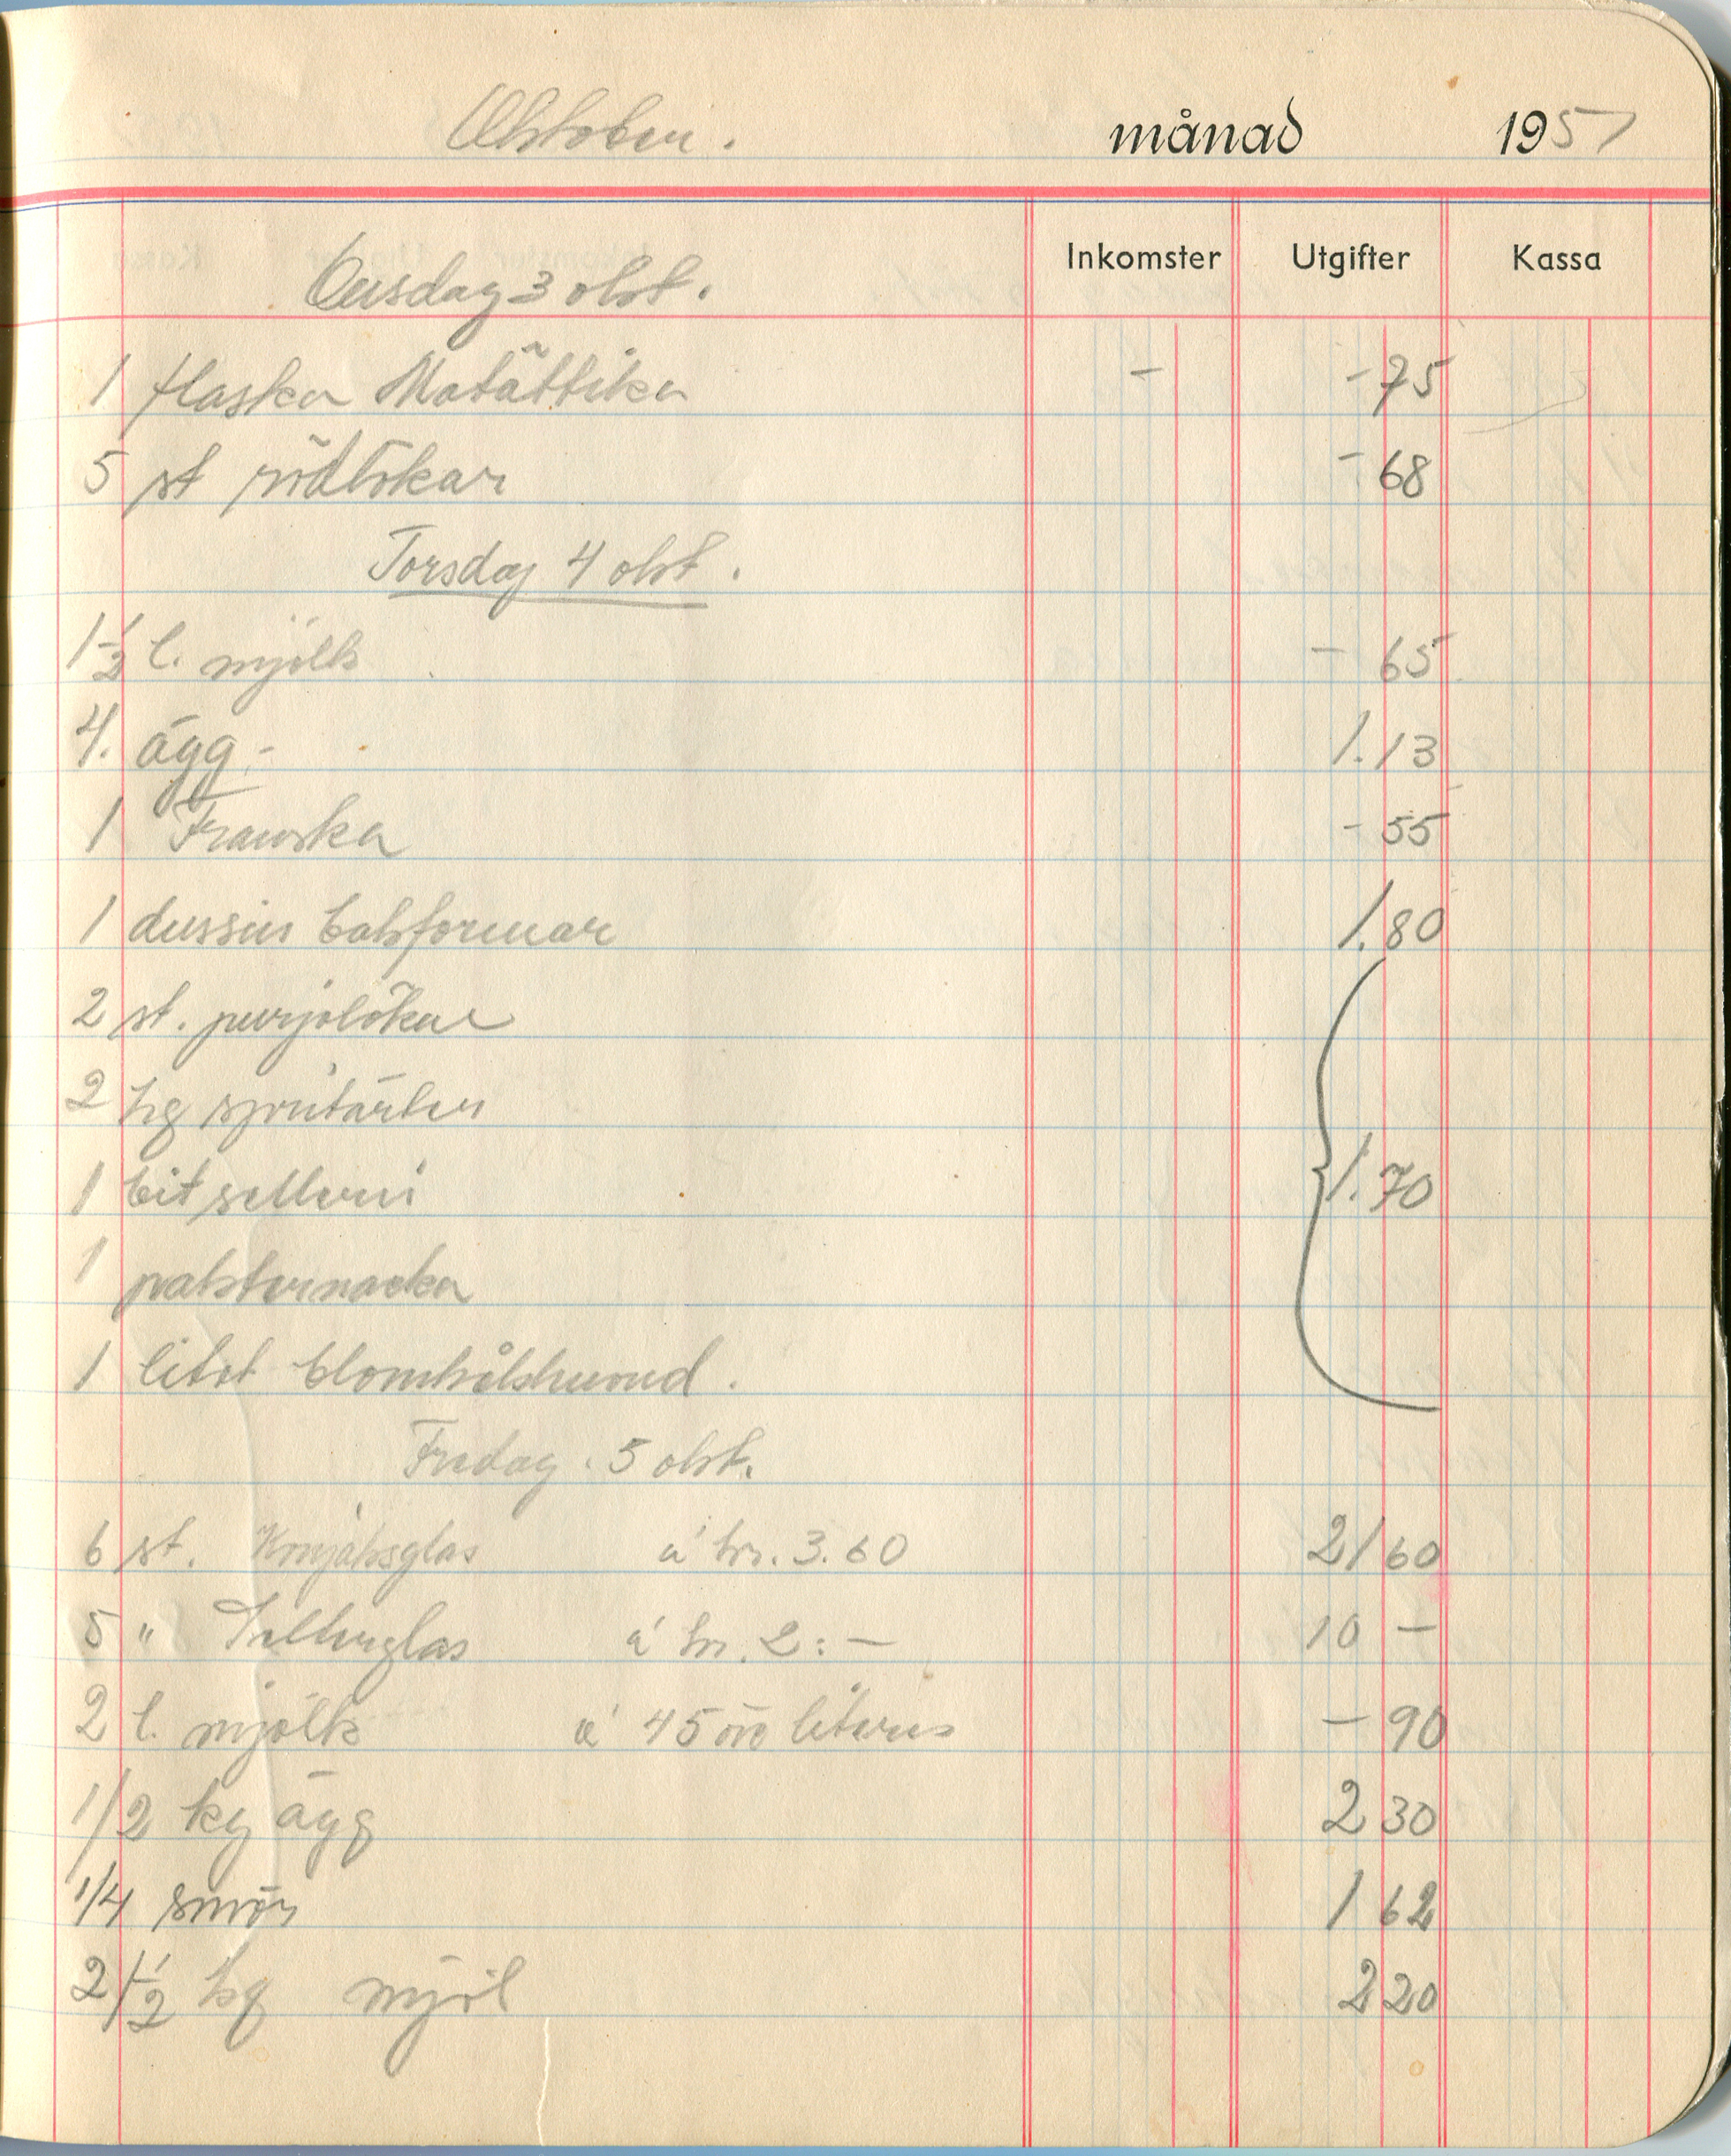 Oktober. månad 1951
Inkomster Utgifter Kassa
Onsdag 3 okt.
1 flaska Matättika - - 75
5 st rödlökar - 68
Torsdag 4 okt.
1 1/2 l. mjölk - 65
4. ägg - 1.13
1 Franska - 55
1 dussin bakformar 1.80
2 st. purjolökar
2 hg spritärter
1 bit selleri 1.70
1 palsternacka
1 litet blomkålshuvud.
Fredag. 5 okt.
6 st. Konjaksglas á kr. 3.60 21 60
5 " Selterglas á kr. 2:- 10 -
2 l. mjölk á 45 öre litern - 90
1/2 kg ägg 2 30
1/4 smör 1 62
2 1/2 kg mjöl 2 20